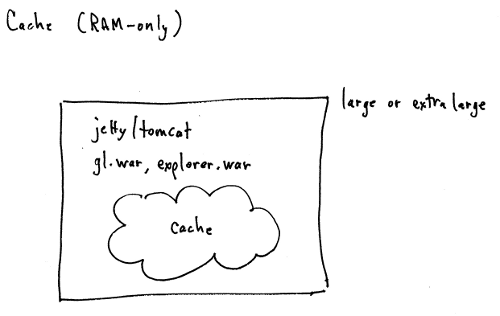 Cache (RAM-only)
large or extra large
jetty/tomcat
gl.war, explorer.war
Cache